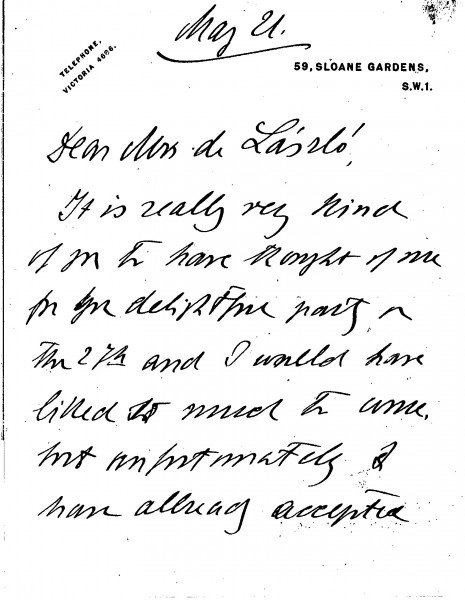 May 21.
TELEPHONE,
VICTORIA 4696.
59, SLOANE GARDENS,
S.W.1.
Dear Mrs de László,
It is really very kind
of you to have thought of me
for your delightful party on
the 27th and I would have
liked so much to come,
but unfortunately I
have allready accepted